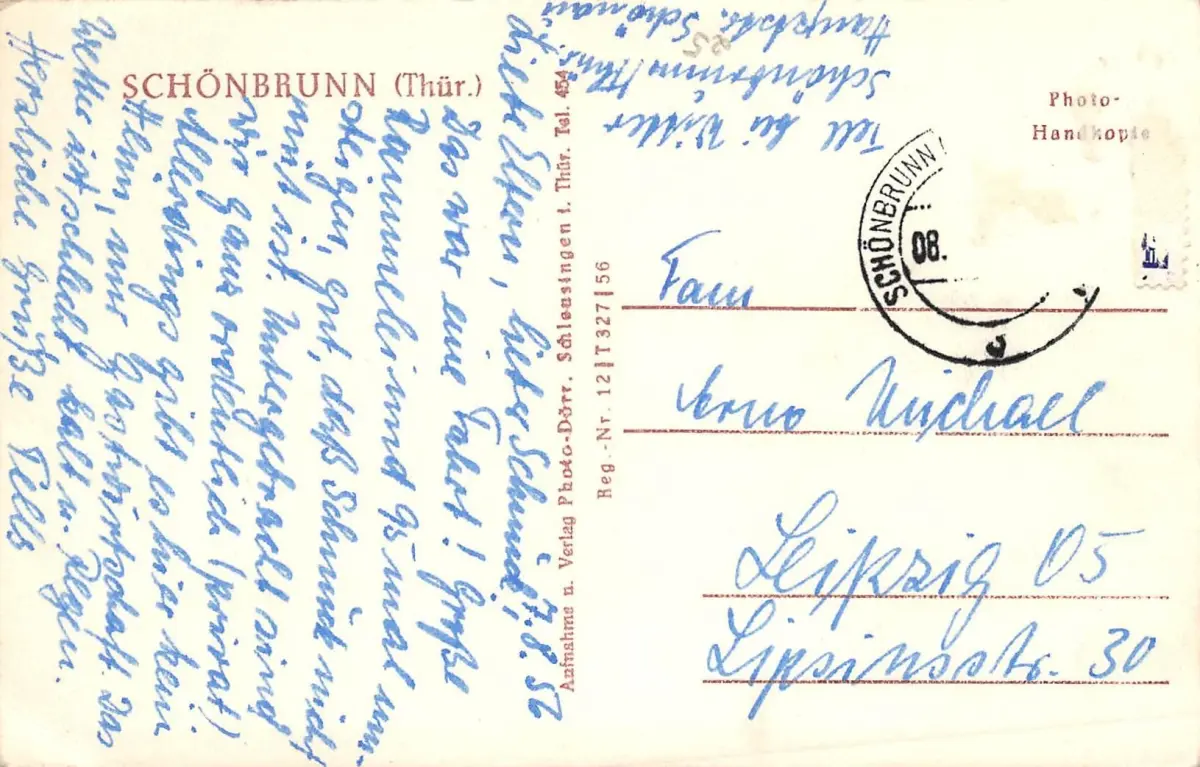 SCHÖNBRUNN (Thür.)
7.8.56
Liebe Eltern, lieber Schmuck,
das war eine Fahrt! Große
Rammelei und 95 mal um-
steigen, gut, daß Schmuck nicht
mit ist. Untergebracht sind
wir ganz ordentlich (privat)
Allerdings gibt es hier kein
Heim, nur Gastwirtschaft. Das
Wetter ist schlecht, kalt u. Regen.
Herzliche Grüße Tells
Aufnahme u. Verlag Photo-Dörr, Schleusingen i. Thür. Tel. 454
Reg.-Nr. 12|T327|56
Tell bei Witter
Schönbrunn/Thür.
Hauptstr. Schönau
25
Photo-
Handkopie
SCHÖNBRUNN
08.
Fam
Arno Michael
Leipzig O5
Lipsiusstr. 30